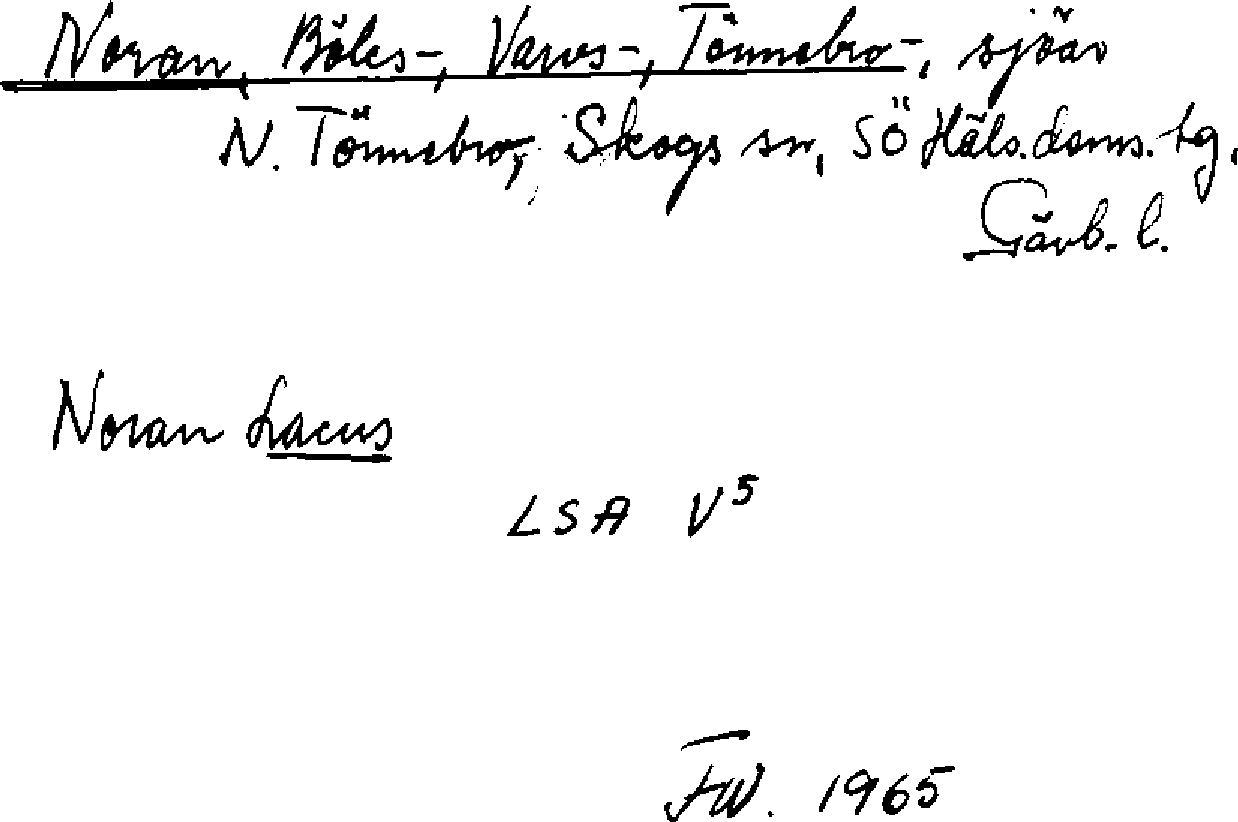 Noran, Böles-, Varvs-, Tönnebro-, sjöar
N. Tönnebro, Skogs sn, SÖ Häls. doms. tg,
Gävb. l.
Noran Lacus
LSA V5
FW. 1965